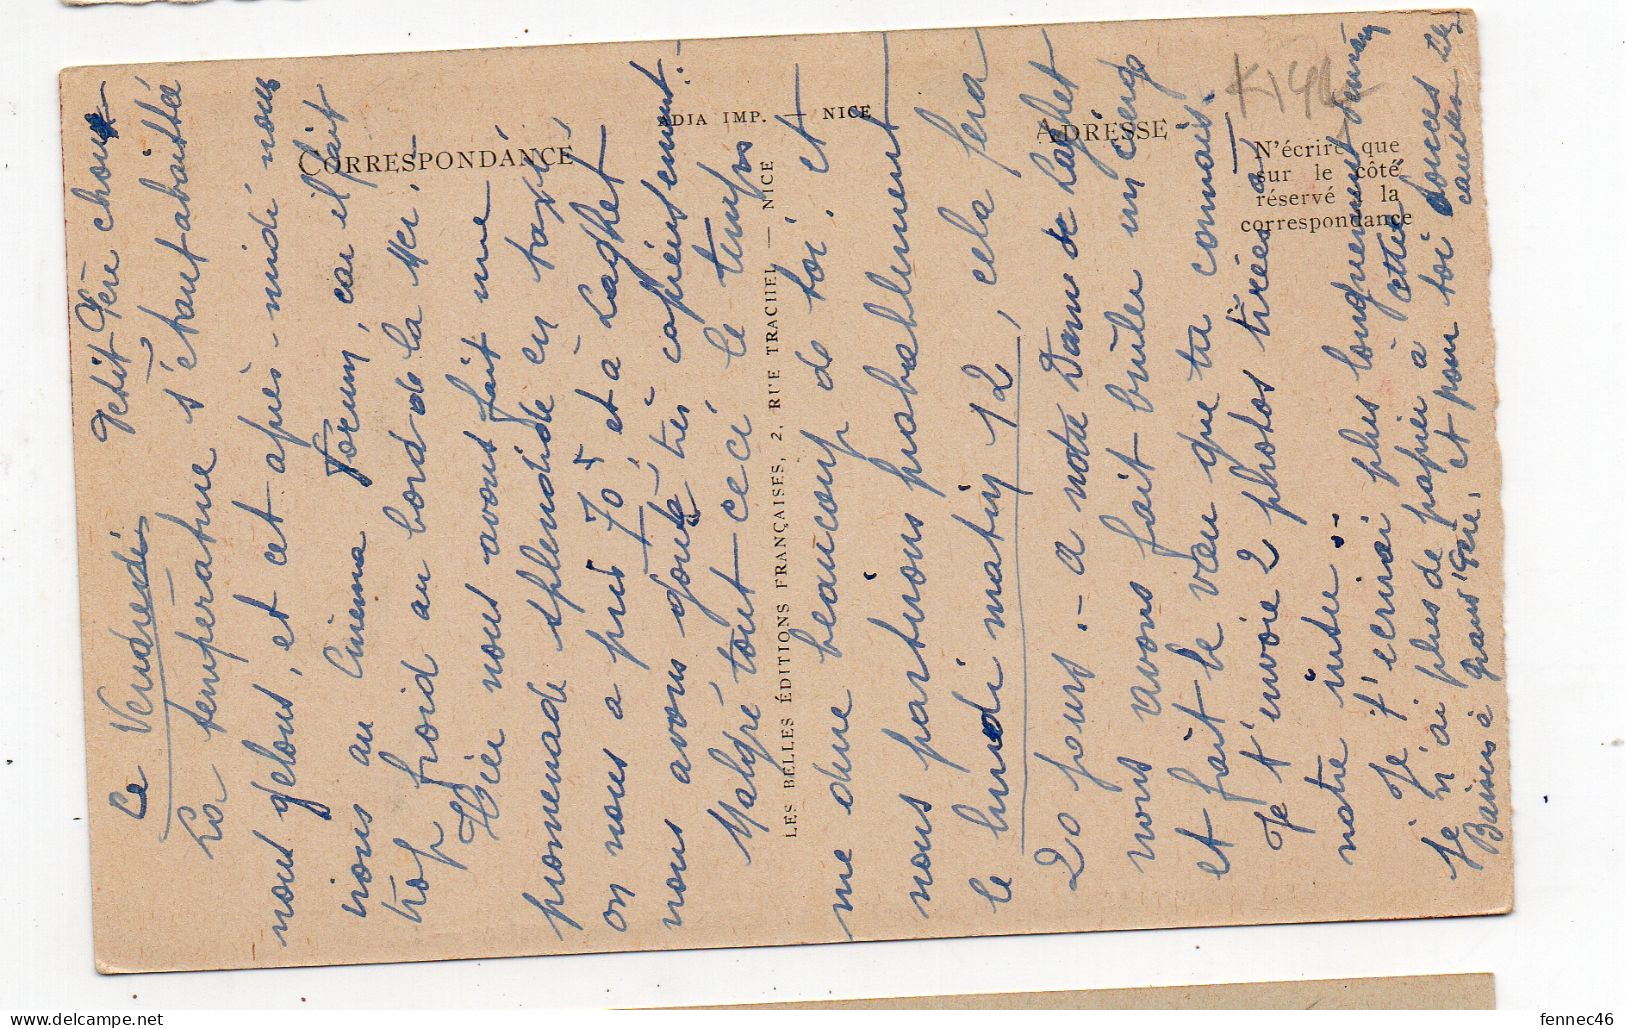 Ce Vendredi
Petit Père chou
La température s'étant abaissée
nous gelons, et cet après-midi nous
nous au Cinéma Forum, car il fait
trop froid au bord de la Mer.
Hier nous avons fait une
promenade splendide en taxi,
on nous a pris 70 et à Laghet
nous avons gouté très copieusement.-
Malgré tout ceci le temps
me dure beaucoup de toi! et
nous partirons probablement
le lundi matin 12, cela fera
20 jours.- a notre Dame de Laghet
nous avons fait brûler un cierge
et fait le vœu que ta connais.
Je t'envoie 2 photos tirées à
notre insu..
Je t'ecrirai plus longuement demain
je n'ai plus de papier à cette
Baisers à grand'père, et pour toi douces
CORRESPONDANCE
ADRESSE
N'écrire que
sur le côté
réservé à la
correspondance
LES BELLES ÉDITIONS FRANÇAISES, 2, RUE TRACHEL — NICE
EDIA IMP. — NICE
fennec46